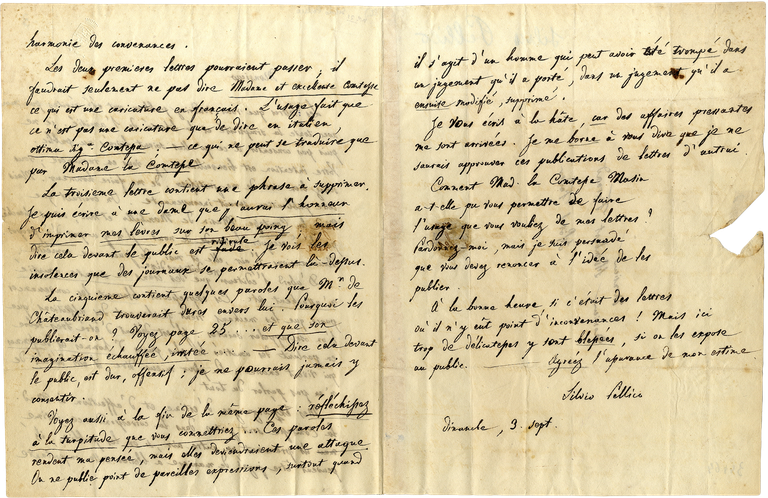 harmonie des convenances.
Les deux premieres lettres pourraient passer; il
faudrait seulement ne pas dire Madame et excellente Comtesse
ce qui est une caricature en français. L'usage fait que
ce n'est pas une caricature que de dire en italien
ottima Sig.ª Contessa; — ce qui ne peut se traduire que
par Madame la Comtesse.
La troisieme lettre contient une phrase à supprimer.
Je puis écrire à une dame que j'aurai l'honneur
d'imprimer mes levres sur son beau poing; mais
dire cela devant le public est ridicule. Je vois les
insolences que des journaux se permettraient là-dessus.
La cinquieme contient quelques paroles que M.r de
Chateaubriand trouverait dures envers lui. Pourquoi les
publierait-on? Voyez page 25.... et que son
imagination échauffée irritée — Dire cela devant
le public, est dur, offensif; je ne pourrais jamais y
consentir.
Voyez aussi à la fin de la même page: réfléchissez
à la turpitude que vous commettriez... Ces paroles
rendent ma pensée, mais elles deviendraient une attaque
On ne publie point de pareilles expressions, surtout quand
il s'agit d'un homme qui peut avoir été trompé dans
un jugement qu'il a porté, dans un jugement qu'il a
ensuite modifié, supprimé.
Je vous ecris à la hâte, car des affaires pressantes
me sont arrivées. Je me borne à vous dire que je ne
saurais approuver ces publications de lettres d'autrui.
Comment Mad. la Comtesse Masin
a-t-elle pu vous permettre de faire
l'usage que vous voulez de mes lettres?
Pardonnez-moi, mais je suis persuadé
que vous devez renoncer à l'idée de les
publier.
À la bonne heure si c'était des lettres
où il n'y eût point d'inconvenances! Mais ici
trop de délicatesses y sont blessées, si on les expose
au public. — Agréez l'assurance de mon estime
Silvio Pellico
dimanche, 3. sept.